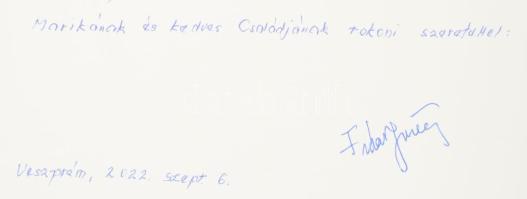 Marikának és kedves Családjának rokoni szeretettel:
Veszprém, 2022. szept 6.